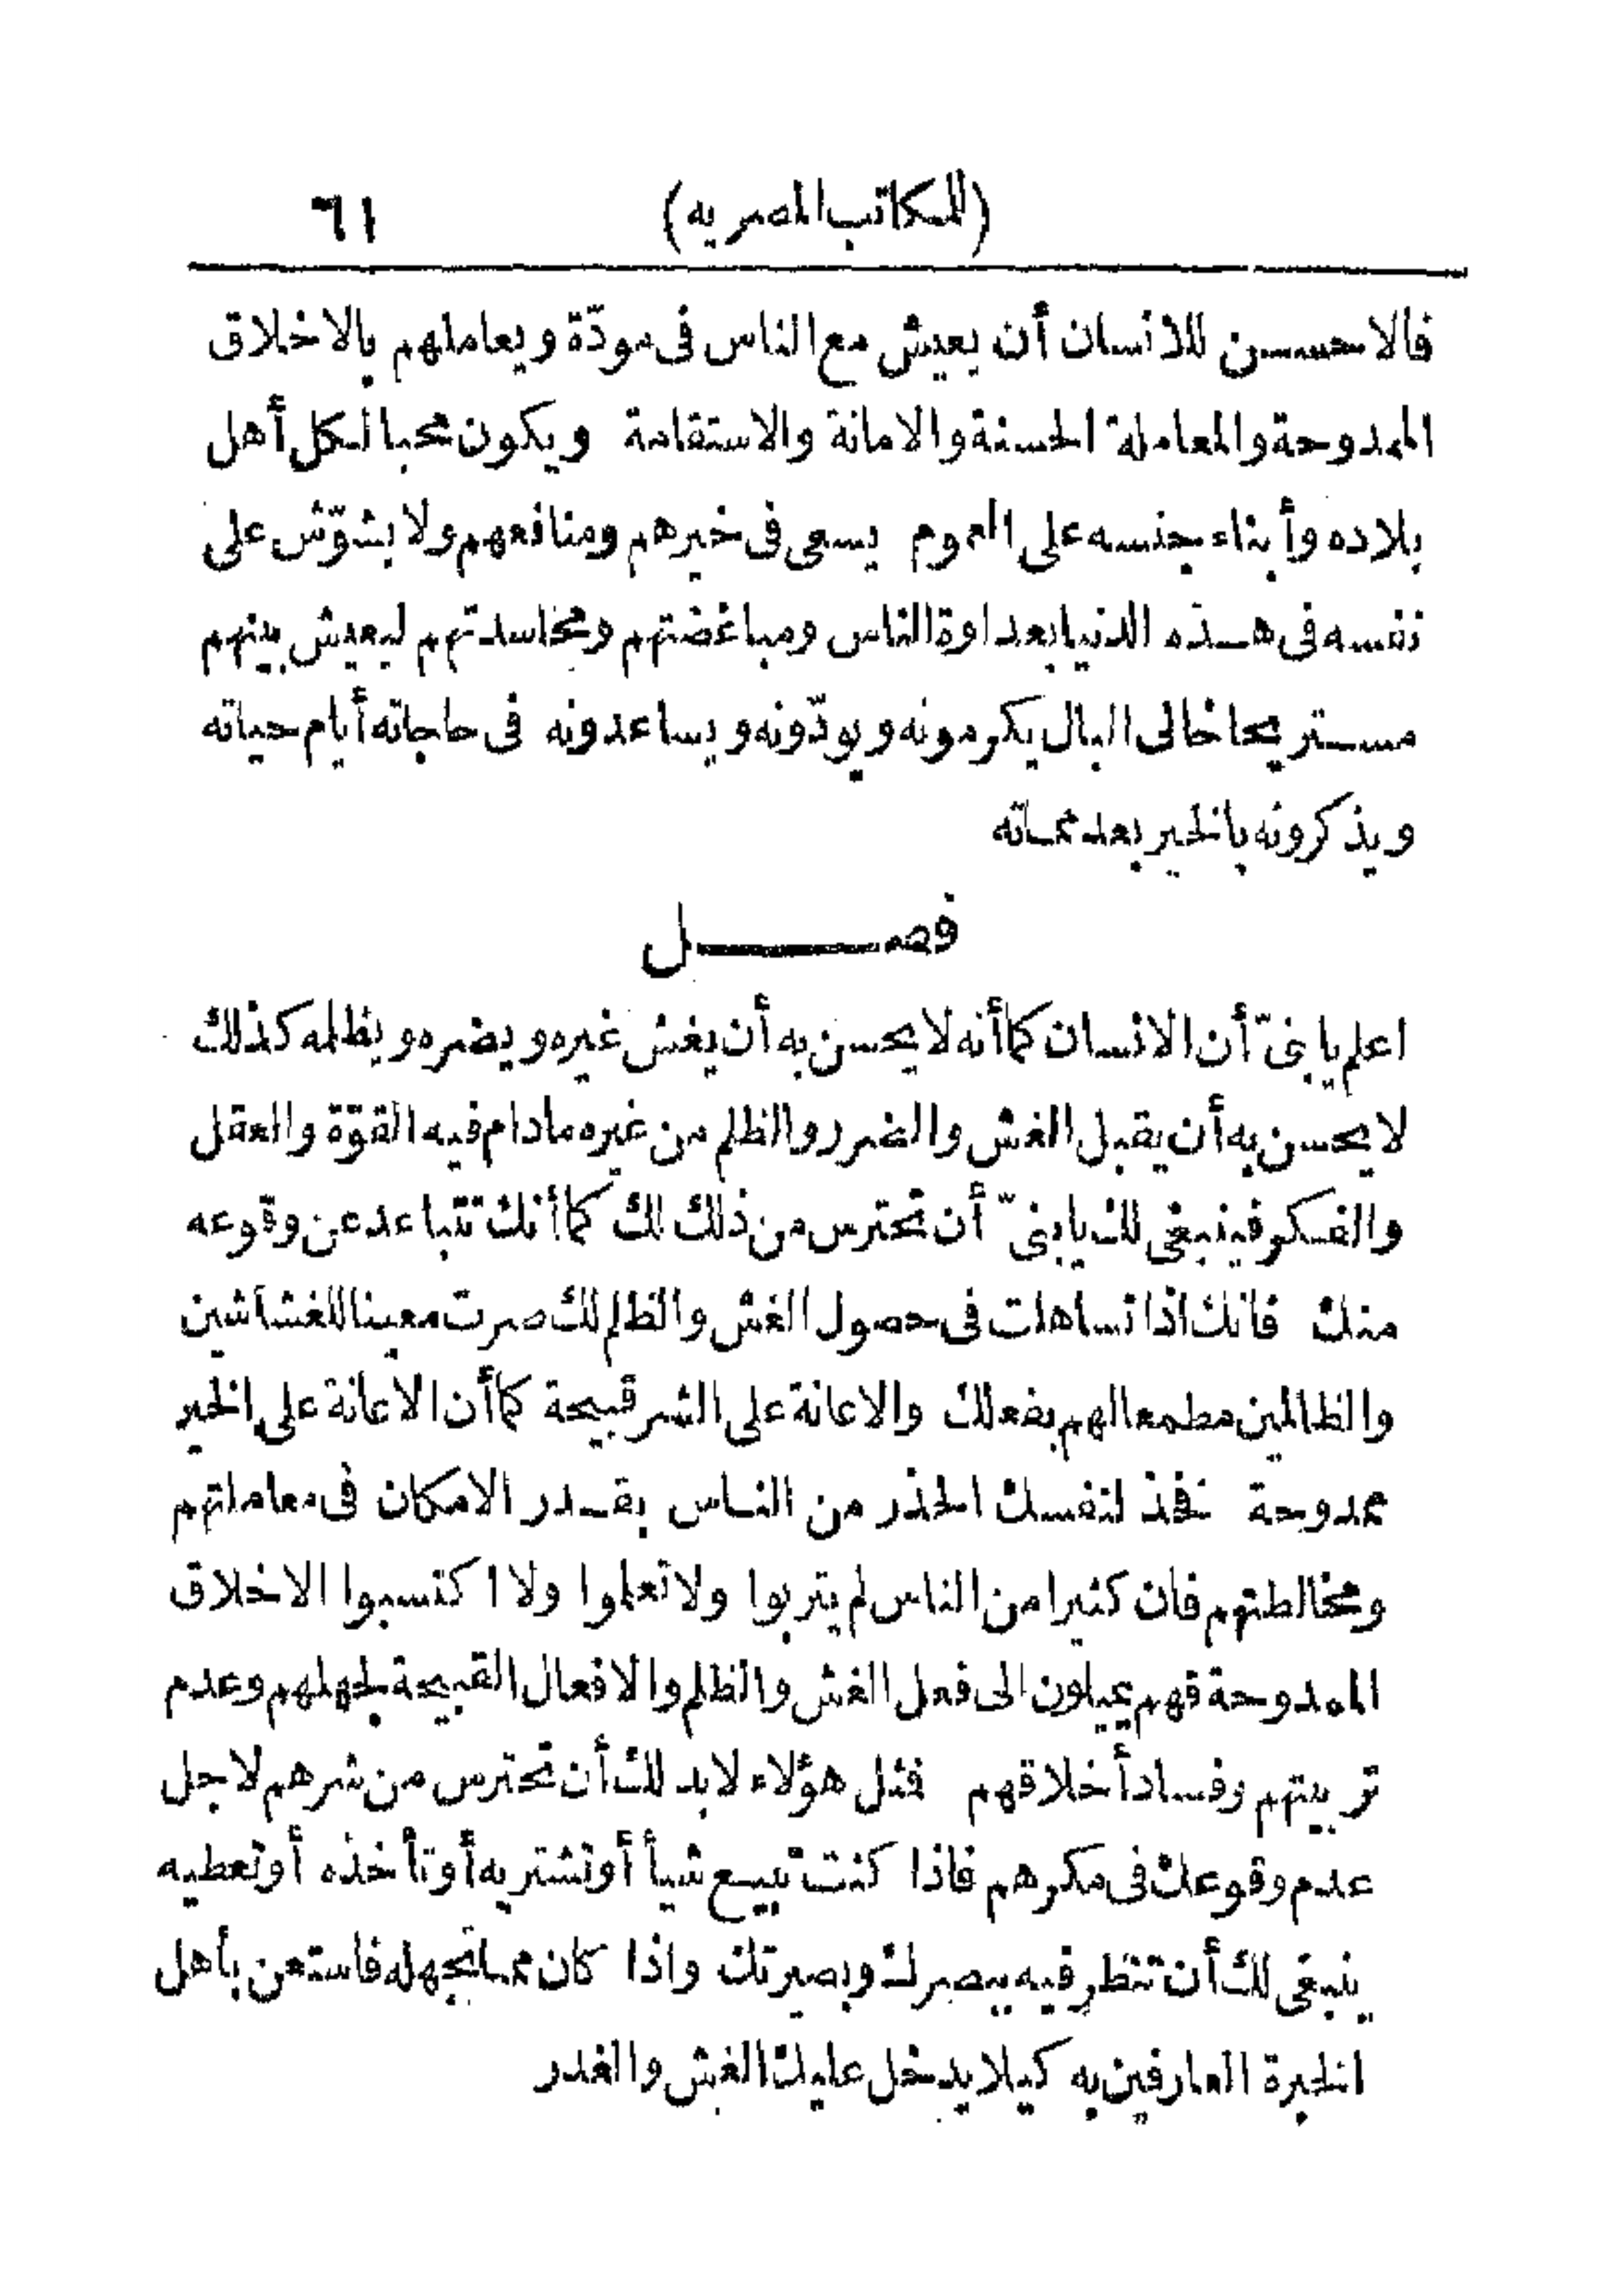 (للمكاتب المصريه) ٦١
فالاحسن للانسان أن يعيش مع الناس فى مودّة ويعاملهم بالاخلاق
الممدوحة والمعاملة الحسنة والامانة والاستقامة ويكون محبا لكل أهل
بلاده وأبناء جنسه على العموم يسعى فى خيرهم ومنافعهم ولا يشوّش على
نفسه فى هذه الدنيا بعداوة الناس ومباغضتهم ومحاسدتهم ليعيش بينهم
مستريحا خالى البال يكرمونه ويودّونه ويساعدونه فى حاجاته أيام حياته
ويذكرونه بالخير بعد مماته
فصل
اعلم يا بنىّ أن الانسان كما أنه لا يحسن به أن يغش غيره ويضره ويظلمه كذلك
لا يحسن به أن يقبل الغش والضرر والظلم من غيره مادام فيه القوّة والعقل
والفكر فينبغى لك يا بنىّ أن تحترس من ذلك لك كما أنك تتباعد عن وقوعه
منك فانك اذا تساهلت فى حصول الغش والظلم لك صرت معينا للغشاشين
والظالمين مطمعا لهم بفعلك والاعانة على الشر قبيحة كما أن الاعانة على الخير
ممدوحة فخذ لنفسك الحذر من الناس بقدر الامكان فى معاملتهم
ومخالطتهم فان كثيرا من الناس لم يتربوا ولا تعلموا ولا اكتسبوا الاخلاق
الممدوحة فهم يميلون الى فعل الغش والظلم والافعال القبيحة لجهلهم وعدم
تربيتهم وفساد أخلاقهم فمثل هؤلاء لا بد لك أن تحترس من شرهم لاجل
عدم وقوعك فى مكرهم فاذا كنت تبيع شيأ أو تشتريه أو تأخذه أو تعطيه
ينبغى لك أن تنظر فيه ببصرك وبصيرتك واذا كان مما تجهله فاستعن بأهل
الخبرة العارفين به كيلا يدخل عليك الغش والغدر